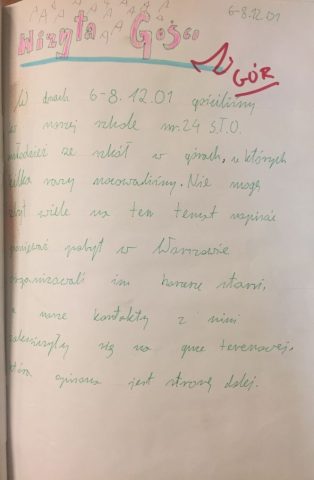 6-8.12.01
Wizyta Gości
z GÓR
W dniach 6-8.12.01 gościliśmy
w naszej szkole nr.24 S.T.O.
młodzież ze szkół w górach, u których
kilka razy nocowaliśmy. Nie mogę
zbyt wiele na ten temat napisać
ponieważ pobyt w Warszawie
organizowali im harcerze starsi,
a nasze kontakty z nimi
zakończyły się na grze terenowej,
która opisana jest stronę dalej.